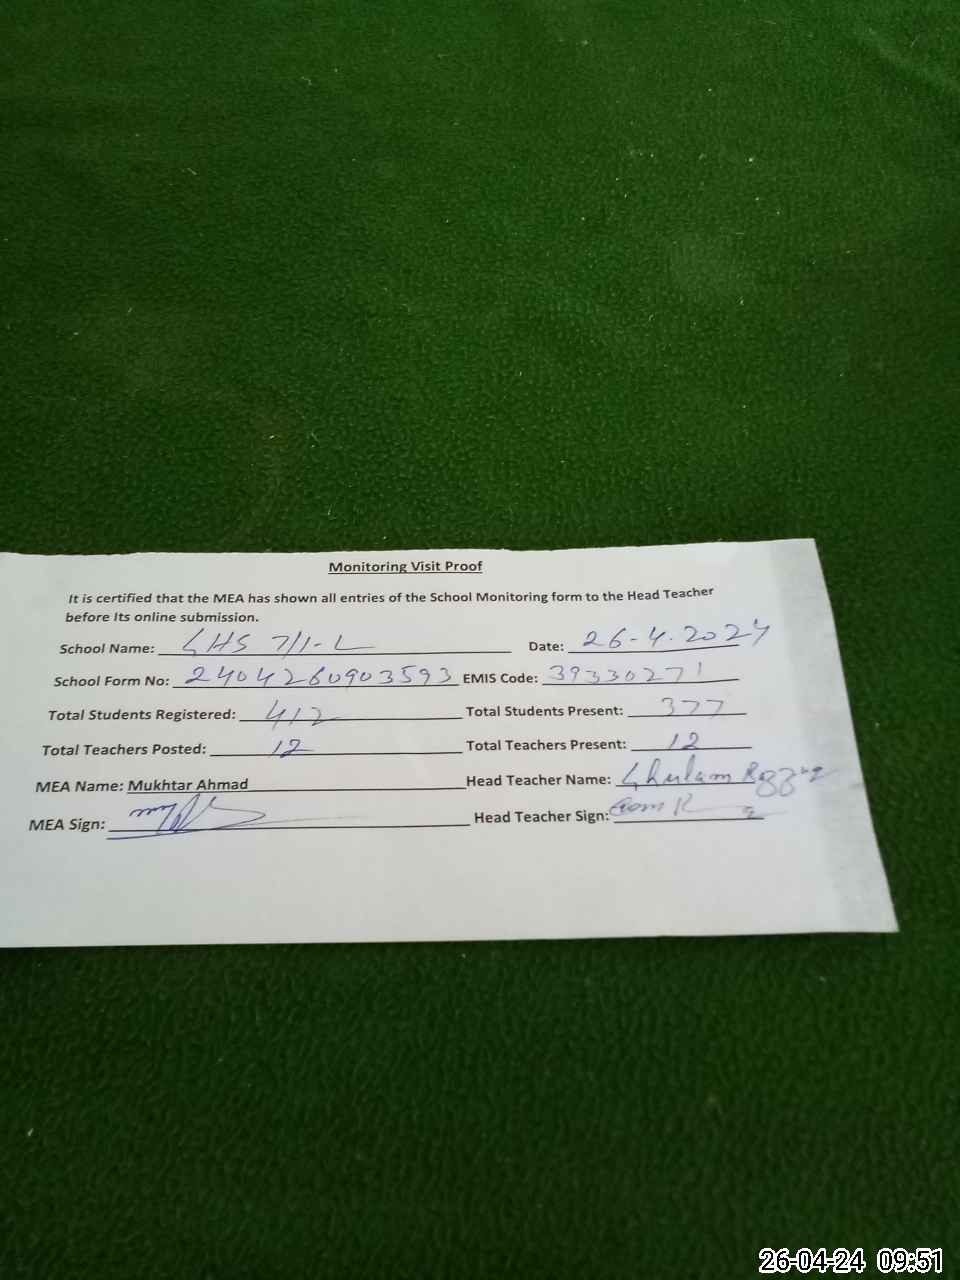 Monitoring Visit Proof
It is certified that the MEA has shown all entries of the School Monitoring form to the Head Teacher
before Its online submission.
School Name: GHS 7/1-L Date: 26-4-2024
School Form No: 2404260903593 EMIS Code: 39330271
Total Students Registered: 412 Total Students Present: 377
Total Teachers Posted: 12 Total Teachers Present: 12
MEA Name: Mukhtar Ahmad Head Teacher Name: Ghulam
MEA Sign: Head Teacher Sign:
26-04-24 09:51